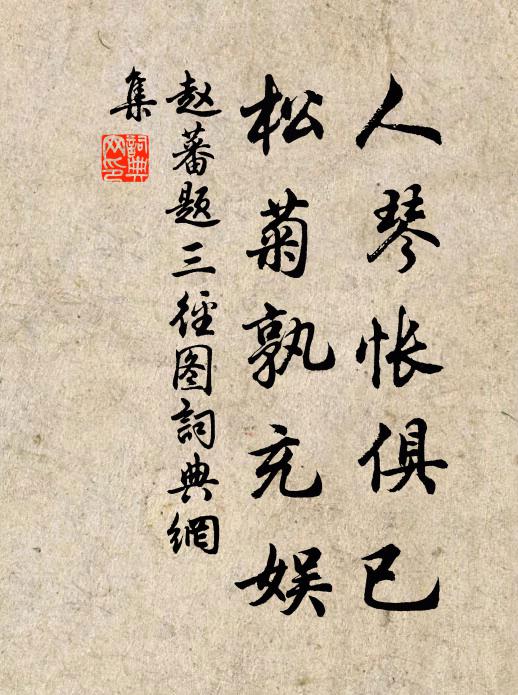 人琴怅俱已
松菊孰充娱
赵蕃题三径图詞典網
集
詞典
网印